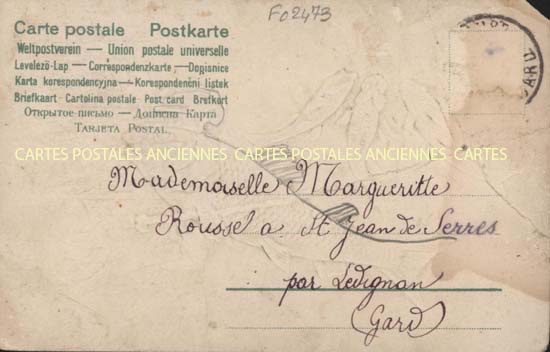 Fo2473
Carte postale Postkarte
Weltpostverein — Union postale universelle
Levelező-Lap — Correspondenzkarte — Dopisnice
Karta korespondencyjna — Korespondenční listek
Briefkaart Cartolina postale Post card Brefkort
Открытое письмо — Дописна Карта
TARJETA POSTAL
CARTES POSTALES ANCIENNES CARTES POSTALES ANCIENNES CARTES
Mademoiselle Margueritte
Roussel a St Jean de Serres
par Ledignan
(Gard)
GARD